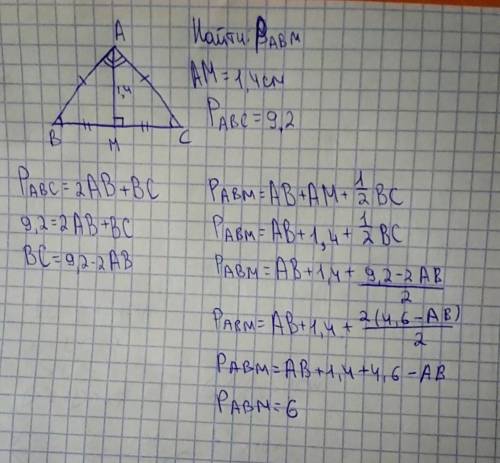 Найти: P_ABM
A
AM = 1,4 см
1,4
P_ABC = 9,2
B
M
C
P_ABC = 2AB + BC
9,2 = 2AB + BC
BC = 9,2 - 2AB
P_ABM = AB + AM + 1/2 BC
P_ABM = AB + 1,4 + 1/2 BC
P_ABM = AB + 1,4 + (9,2 - 2AB)/2
P_ABM = AB + 1,4 + 2(4,6 - AB)/2
P_ABM = AB + 1,4 + 4,6 - AB
P_ABM = 6